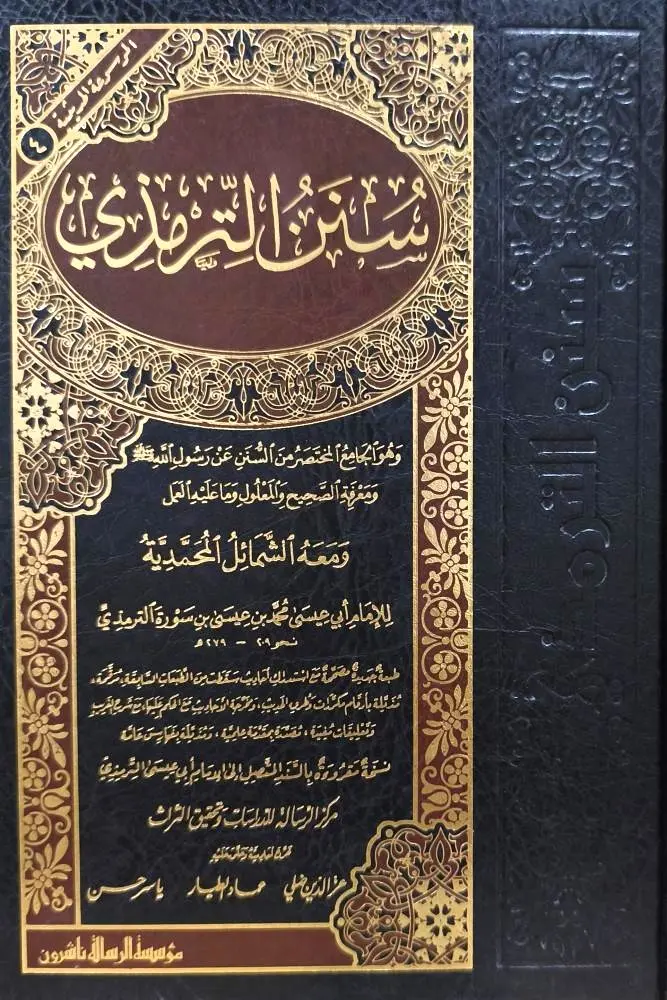 الموسوعة الحديثية
٤
سُنَنُ التِّرمِذِي
وَهُوَ الجَامِعُ المُختَصَرُ مِنَ السُّنَنِ عَنْ رَسُولِ اللهِ ﷺ
وَمَعْرِفَةِ الصَّحِيحِ وَالمَعْلُولِ وَمَا عَلَيْهِ العَمَل
وَمَعَهُ الشَّمَائِلُ المُحَمَّدِيَّةُ
لِلإِمَامِ أَبِي عِيسَىٰ مُحَمَّد بن عِيسَىٰ بن سَوْرَة التِّرمِذِيِّ
نحو ٢٠٩ - ٢٧٩ هـ
طبعة جديدة مصححة مع استدراك أحاديث سقطت من الطبعات السابقة، مرقمة،
مذيلة بأرقام مكررات وطرق الحديث، ومخرجة الأحاديث مع الحكم عليها، مع شرح الغريب
وتعليقات مفيدة، مقدمة بمقدمة علمية، ومذيلة بفهارس عامة
نسخة مقروءة بالسند المتصل إلى الإمام أبي عيسى الترمذي
مركز الرسالة للدراسات وتحقيق التراث
عز الدين ضلي عماد الطيار ياسر حسن
مؤسسة الرسالة ناشرون
سنن الترمذي